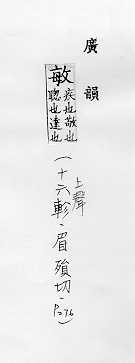 廣韻
敏 疾也敬也聰也達也
(上聲十六軫·眉殞切·P.276)